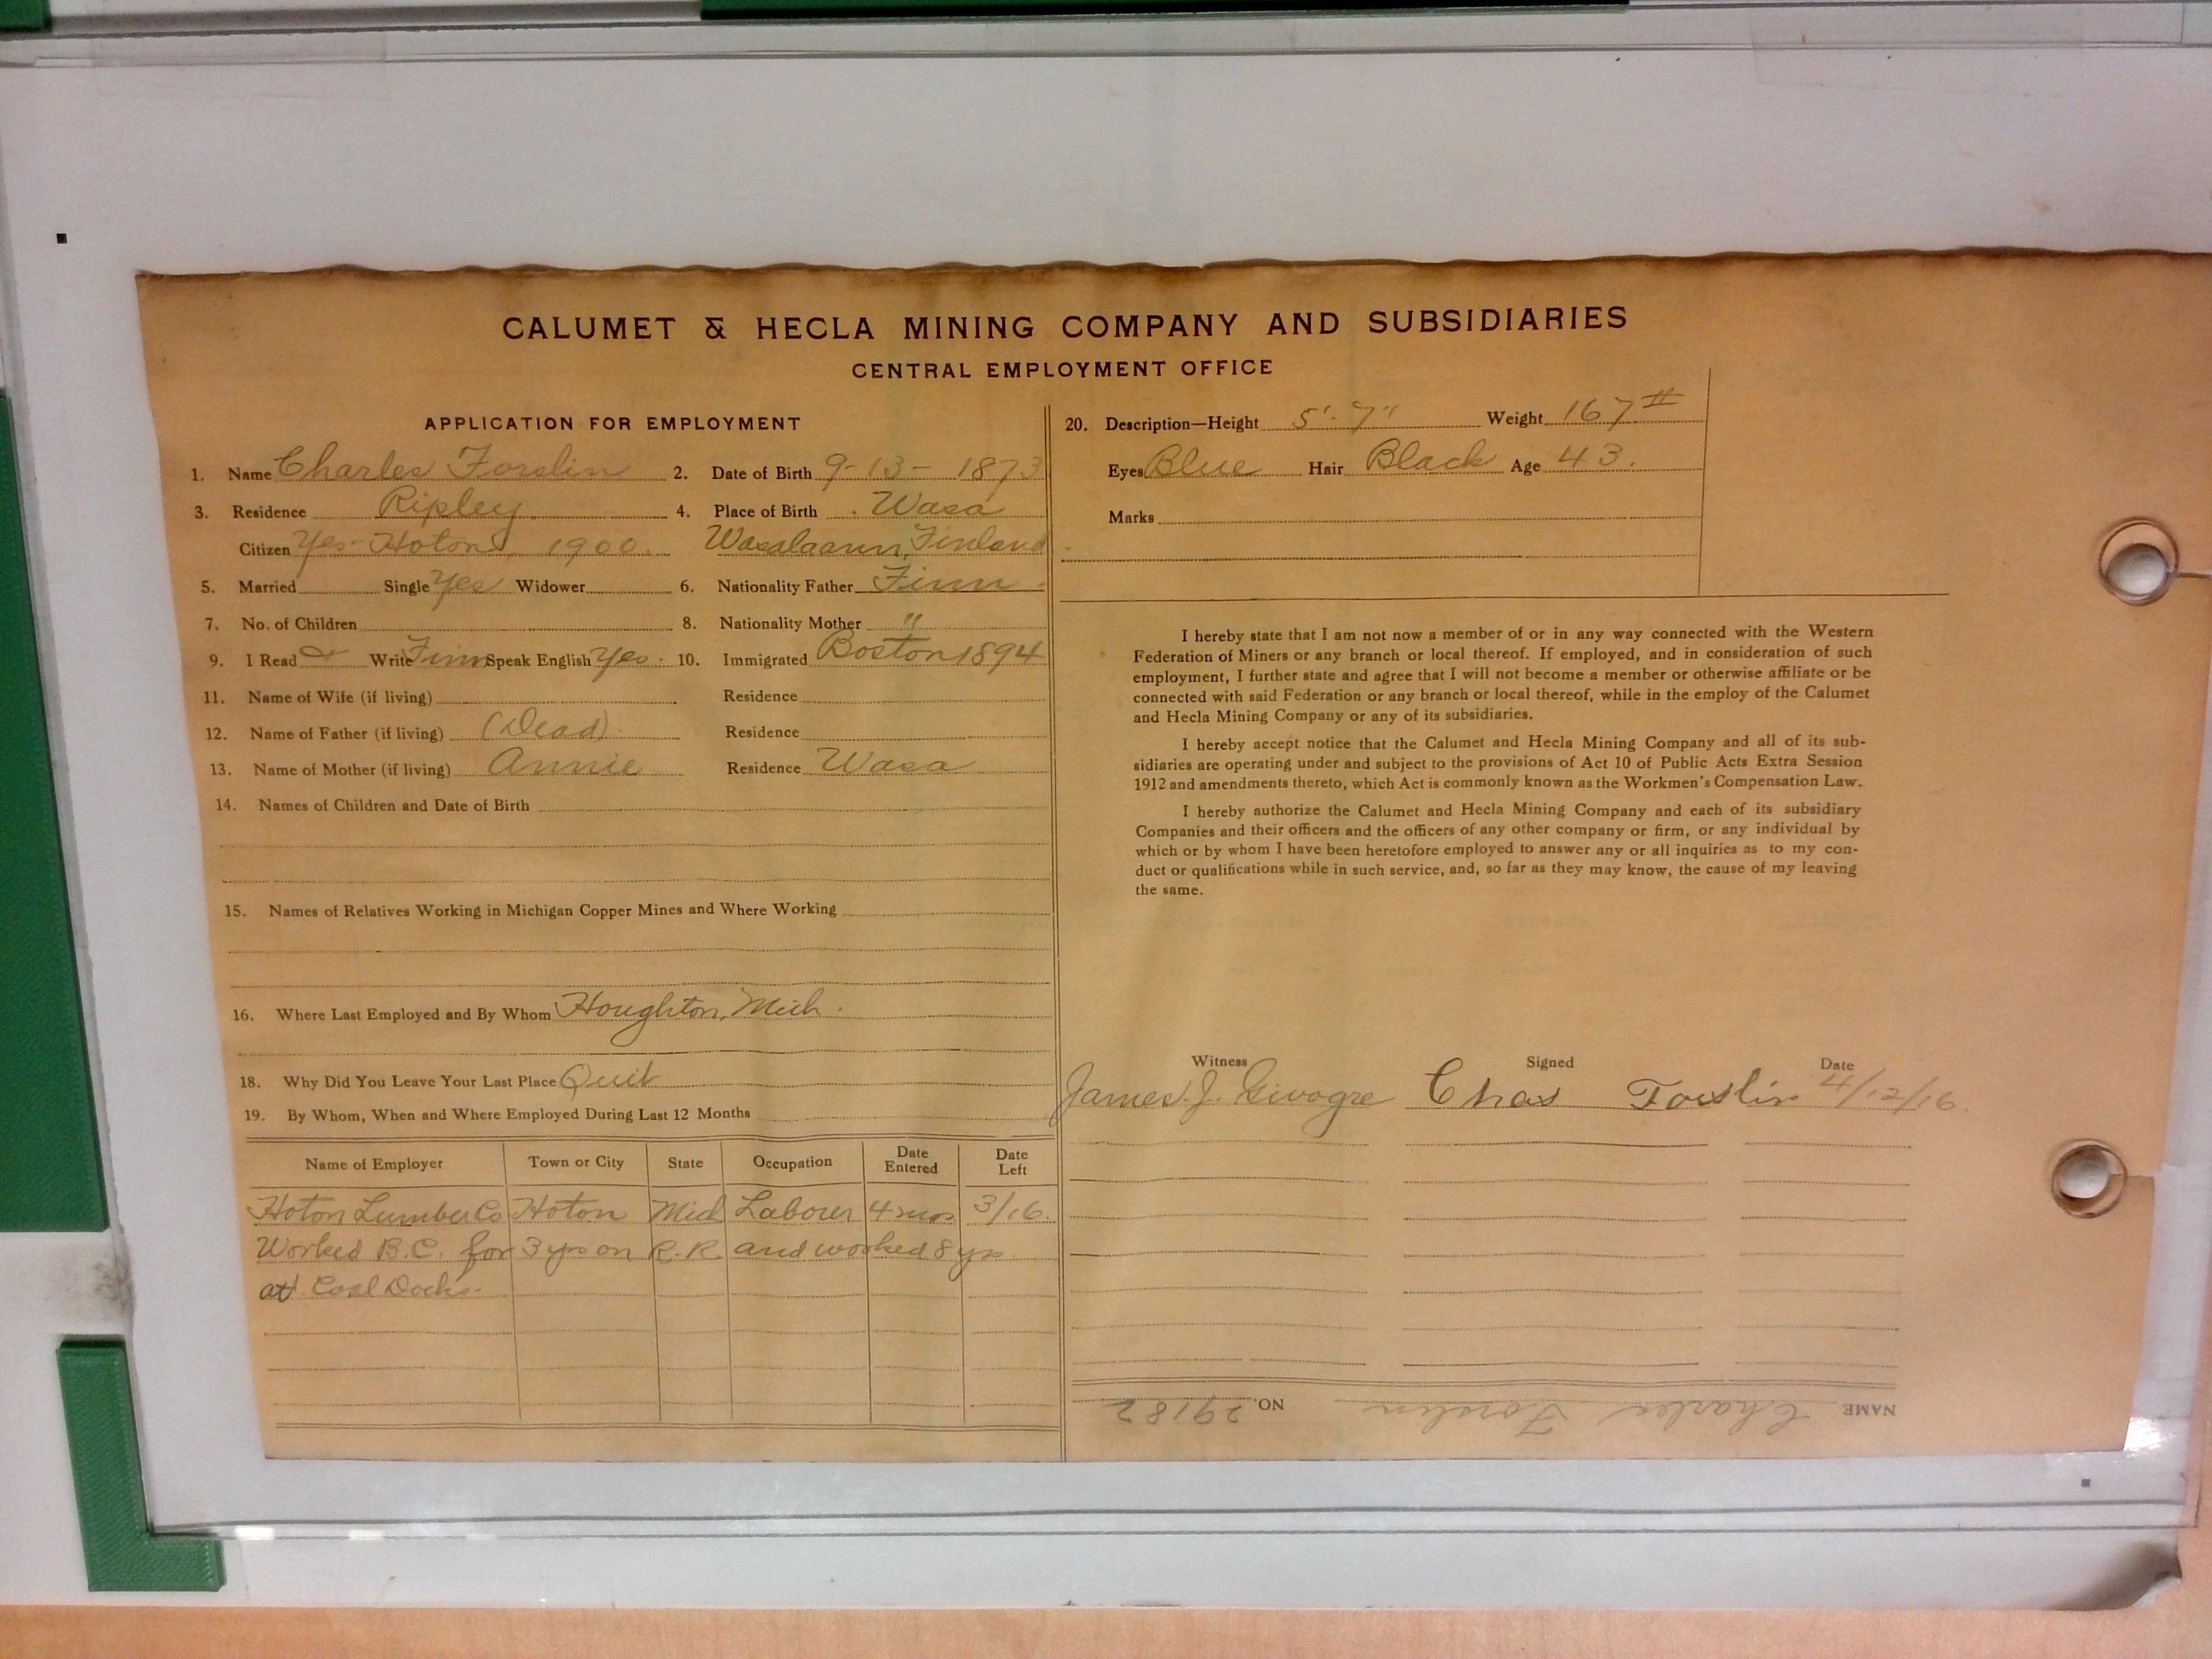 CALUMET & HECLA MINING COMPANY AND SUBSIDIARIES
CENTRAL EMPLOYMENT OFFICE
APPLICATION FOR EMPLOYMENT
1. Name Charles Forslin 2. Date of Birth 9-13-1873
3. Residence Ripley. 4. Place of Birth Wasa
Citizen Yes-Hoton, 1900. Wasalaann, Finland
5. Married Single Yes Widower 6. Nationality Father Finn
7. No. of Children 8. Nationality Mother "
9. I Read & Write Finn Speak English Yes. 10. Immigrated Boston 1894
11. Name of Wife (if living) Residence
12. Name of Father (if living) (Dead). Residence
13. Name of Mother (if living) Annie Residence Wasa
14. Names of Children and Date of Birth
15. Names of Relatives Working in Michigan Copper Mines and Where Working
16. Where Last Employed and By Whom Houghton, Mich.
18. Why Did You Leave Your Last Place Quit
19. By Whom, When and Where Employed During Last 12 Months
Name of Employer Town or City State Occupation Date Entered Date Left
Hoton Lumber Co Hoton Mich Laborer 4 mos 3/16.
Worked B.C. for 3 yrs on R.R. and worked 8 yrs
at Coal Docks.
20. Description—Height 5'-7" Weight 167#
Eyes Blue Hair Black Age 43.
Marks
I hereby state that I am not now a member of or in any way connected with the Western
Federation of Miners or any branch or local thereof. If employed, and in consideration of such
employment, I further state and agree that I will not become a member or otherwise affiliate or be
connected with said Federation or any branch or local thereof, while in the employ of the Calumet
and Hecla Mining Company or any of its subsidiaries.
I hereby accept notice that the Calumet and Hecla Mining Company and all of its sub-
sidiaries are operating under and subject to the provisions of Act 10 of Public Acts Extra Session
1912 and amendments thereto, which Act is commonly known as the Workmen's Compensation Law.
I hereby authorize the Calumet and Hecla Mining Company and each of its subsidiary
Companies and their officers and the officers of any other company or firm, or any individual by
which or by whom I have been heretofore employed to answer any or all inquiries as to my con-
duct or qualifications while in such service, and, so far as they may know, the cause of my leaving
the same.
Witness Signed Date
James J. Chas Forslin 4/12/16.
NAME Charles Forslin NO. 29182